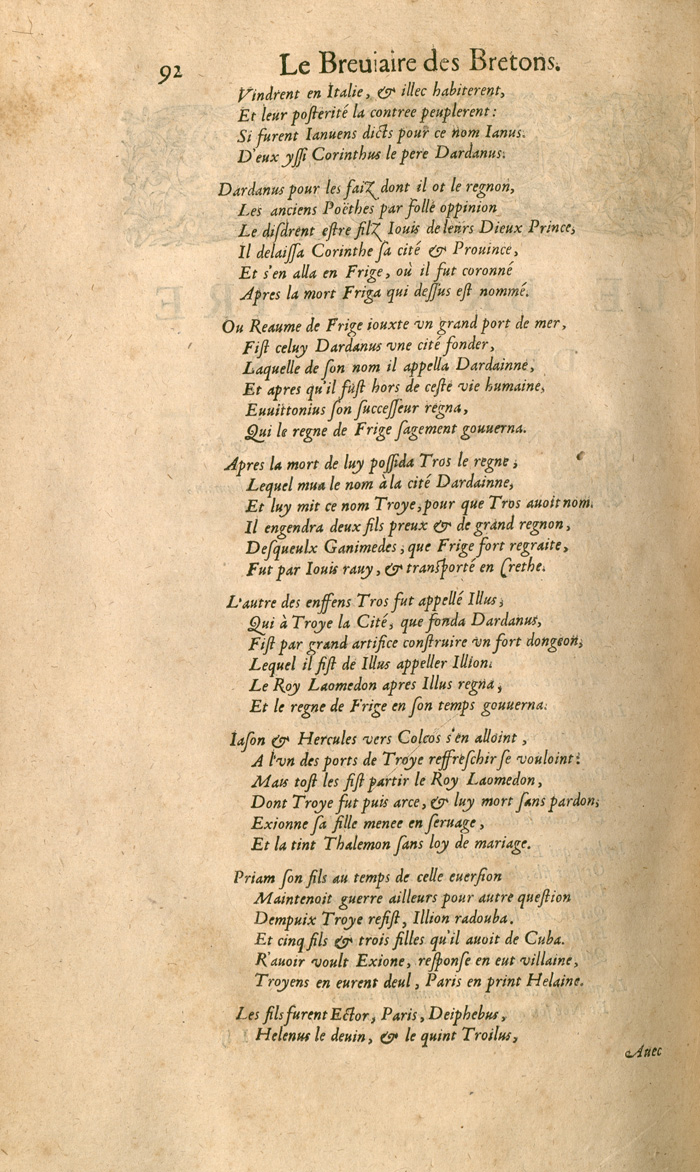 92 Le Breuiaire des Bretons.
Vindrent en Italie, & illec habiterent,
Et leur posterité la contree peuplerent:
Si furent Ianuens dicts pour ce nom Ianus.
D'eux yssi Corinthus le pere Dardanus.
Dardanus pour les faiz dont il ot le regnon,
Les anciens Poëthes par folle oppinion
Le disdrent estre filz Iouis de leurs Dieux Prince,
Il delaissa Corinthe sa cité & Prouince,
Et s'en alla en Frige, où il fut coronné
Apres la mort Friga qui dessus est nommé.
Ou Reaume de Frige iouxte vn grand port de mer,
Fist celuy Dardanus vne cité fonder,
Laquelle de son nom il appella Dardainne,
Et apres qu'il fust hors de ceste vie humaine,
Euuittonius son successeur regna,
Qui le regne de Frige sagement gouuerna.
Apres la mort de luy possida Tros le regne,
Lequel mua le nom à la cité Dardainne,
Et luy mit ce nom Troye, pour que Tros auoit nom.
Il engendra deux fils preux & de grand regnon,
Desqueulx Ganimedes, que Frige fort regraite,
Fut par Iouis rauy, & transporté en Crethe.
L'autre des enffens Tros fut appellé Illus,
Qui à Troye la Cité, que fonda Dardanus,
Fist par grand artifice construire vn fort dongeon,
Lequel il fist de Illus appeller Illion.
Le Roy Laomedon apres Illus regna,
Et le regne de Frige en son temps gouuerna.
Iason & Hercules vers Colcos s'en alloint,
A l'vn des ports de Troye reffreschir se vouloint:
Mais tost les fist partir le Roy Laomedon,
Dont Troye fut puis arce, & luy mort sans pardon,
Exionne sa fille menee en seruage,
Et la tint Thalemon sans loy de mariage.
Priam son fils au temps de celle euersion
Maintenoit guerre ailleurs pour autre question
Dempuix Troye refist, Illion radouba.
Et cinq fils & trois filles qu'il auoit de Cuba.
R'auoir voult Exione, response en eut villaine,
Troyens en eurent deul, Paris en print Helaine.
Les fils furent Ector, Paris, Deiphebus,
Helenus le deuin, & le quint Troilus,
Auec